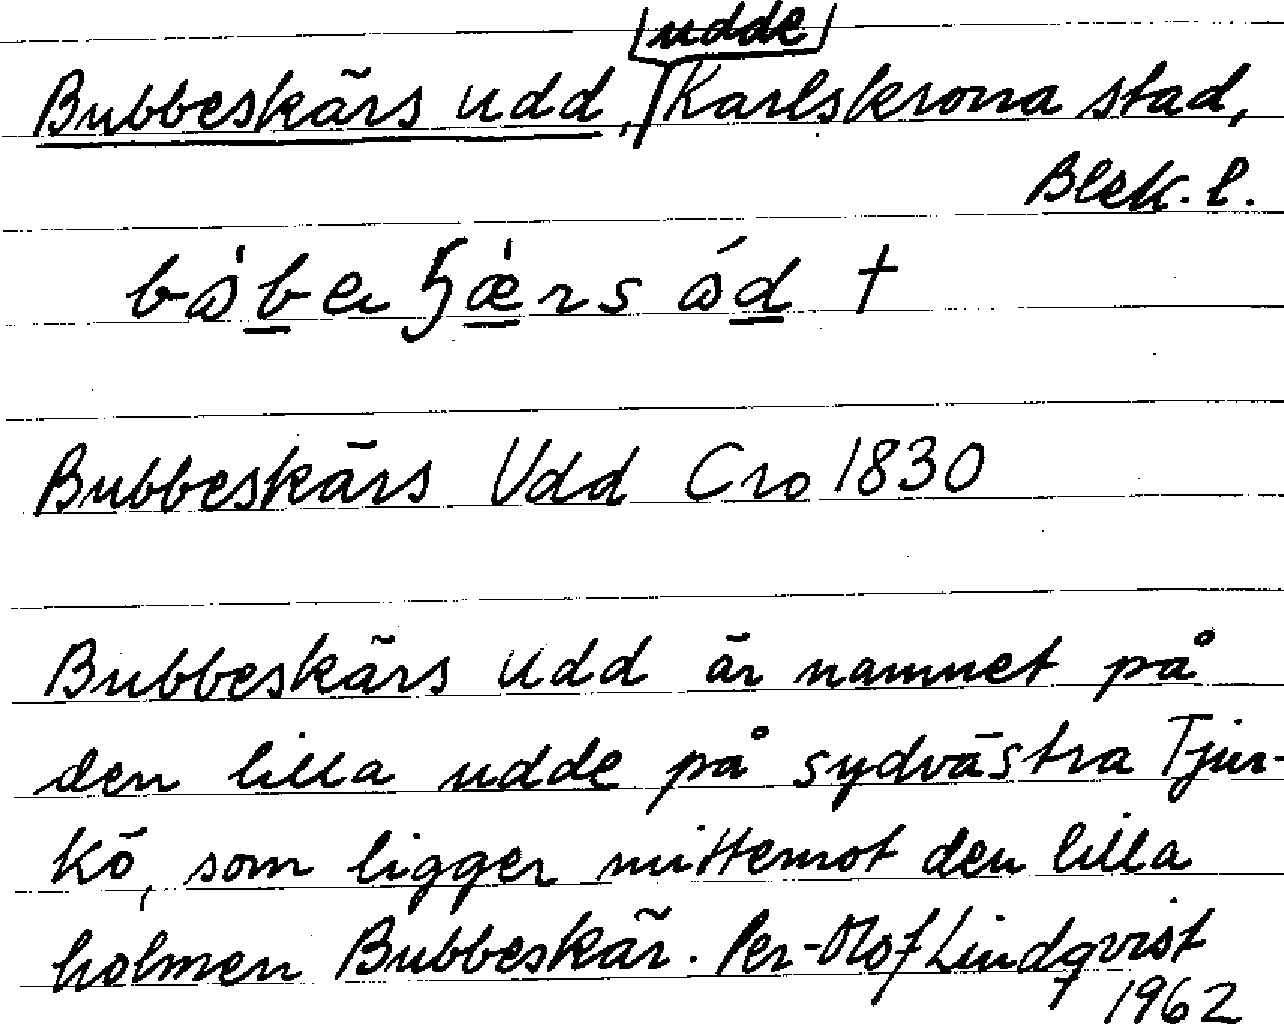 Bubbeskärs udd, udde Karlskrona stad,
Blek. l.
Bubbeskärs Udd Cro 1830
Bubbeskärs Udd är namnet på
den lilla udde på sydvästra Tjur-
kö, som ligger mittemot den lilla
holmen Bubbeskär. Per-Olof Lindqvist
1962